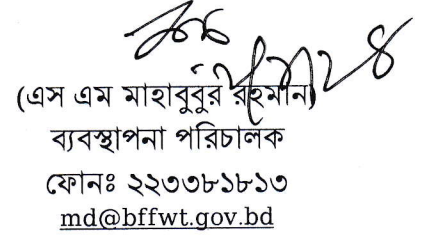 (এস এম মাহাবুবুর রহমান)
ব্যবস্থাপনা পরিচালক
ফোনঃ ২২৩৩৮১৮১৩
md@bffwt.gov.bd